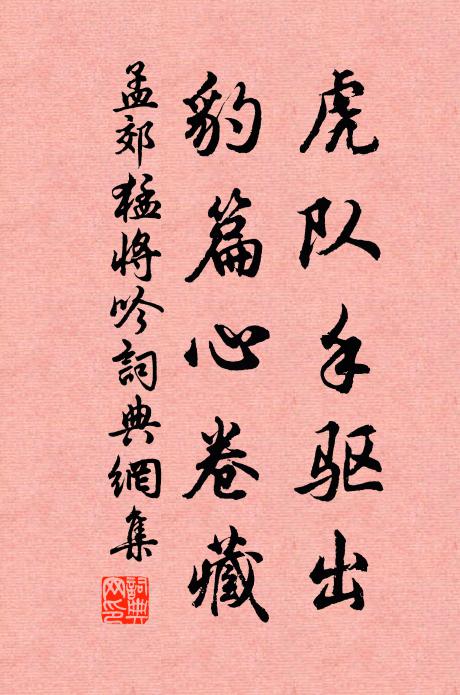 虎队手驱出
豹篇心卷藏
孟郊猛将吟詞典網集
詞典网印